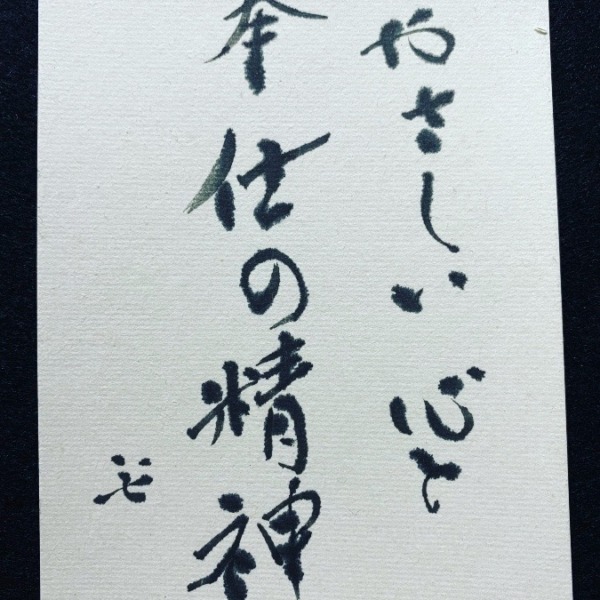 やさしい心と
奉仕の精神